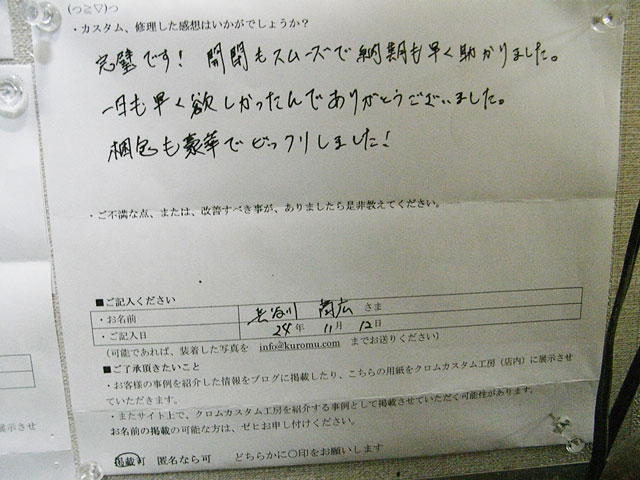 (っ≧▽)っ
・カスタム、修理した感想はいかがでしょうか？
完璧です！ 開閉もスムーズで納期も早く助かりました。
一日も早く欲しかったんでありがとうございました。
梱包も豪華でビックリしました！
・ご不満な点、または、改善すべき事が、ありましたら是非教えてください。
■ご記入ください
・お名前 長谷川 さま
・ご記入日 24年 11月 12日
（可能であれば、装着した写真を info@kuromu.com までお送りください）
■ご了承頂きたいこと
・お客様の事例を紹介した情報をブログに掲載したり、こちらの用紙をクロムカスタム工房（店内）に展示させ
ていただきます。
・またサイト上で、クロムカスタム工房を紹介する事例として掲載させていただく可能性があります。
お名前の掲載の可能な方は、ゼヒお申し付けください。
掲載可 匿名なら可 どちらかに〇印をお願いします
展示させ